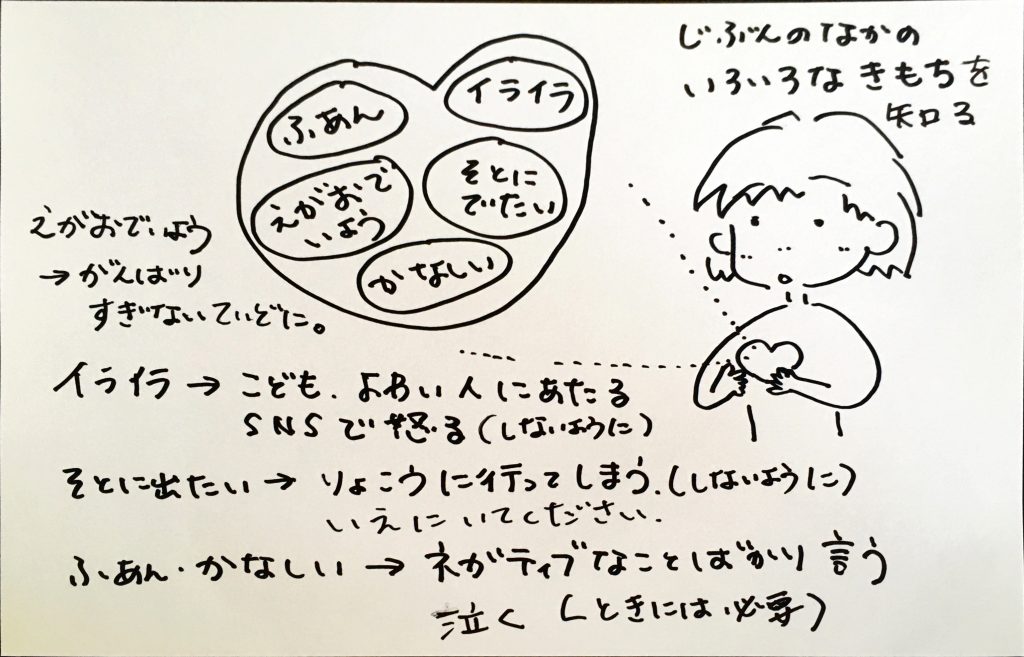 じぶんのなかの
いろいろなきもちを
知る
ふあん
イライラ
えがおで
いよう
そとに
でたい
かなしい
えがおでいよう
→がんばり
すぎないていどに。
イライラ→こども、よわい人にあたる
SNSで怒る(しないように)
そとに出たい→りょこうに行ってしまう。(しないように)
いえにいてください。
ふあん・かなしい→ネガティブなことばかり言う
泣く(ときには必要)